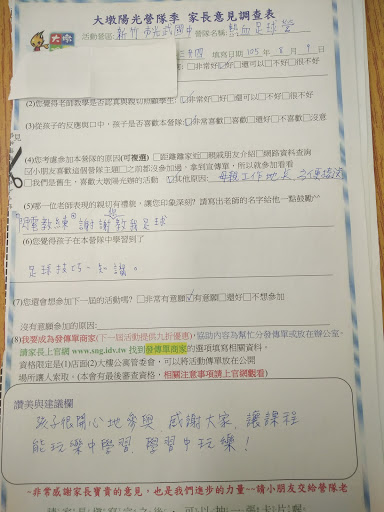 大墩陽光營隊季 家長意見調查表
大墩
活動營區: 新竹市光武國中 營隊名稱: 熱血足球營
填寫日期 105 年 8 月 9 日
□非常好□好□還可以□不好□很不好
(2)您覺得老師教學是否認真與親切照顧學生:□非常好□好□還可以□不好□很不好
(3)從孩子的反應與口中,孩子是否喜歡本營隊:□非常喜歡□喜歡□還好□不喜歡□沒意見
(4)您考慮參加本營隊的原因(可複選) □距離離家近□親戚朋友介紹□網路資料查詢
☑小朋友喜歡這個營隊主題□之前都沒參加過,拿到宣傳單,所以就參加看看
□我們是舊生,喜歡大墩陽光辦的活動 ☑其他原因: 母親工作地點,方便接送
(5)哪一位老師表現的親切有禮貌,讓您印象深刻?請寫出老師的名字給他一點鼓勵^^
閃電教練 謝謝教我足球
(6)您覺得孩子在本營隊中學習到了
足球技巧、知識。
(7)您還會想參加下一屆的活動嗎? □非常有意願☑有意願□還好□不想參加
沒有意願參加的原因:
(8)我要成為發傳單商家(下一屆活動提供九折優惠),協助內容為幫忙分發傳單或放在辦公室。
請家長上官網 www.sng.idv.tw 找到發傳單商家的選項填寫相關資料,
資格限定是(1)店面(2)大樓公寓管委會,可以將活動傳單放在公開
場所讓人索取。(本會有最後審查資格,相關注意事項請上官網觀看)
讚美與建議欄
孩子很開心地參與,感謝大家,讓課程
能玩樂中學習,學習中玩樂!
~非常感謝家長寶貴的意見,也是我們進步的力量~~請小朋友交給營隊老